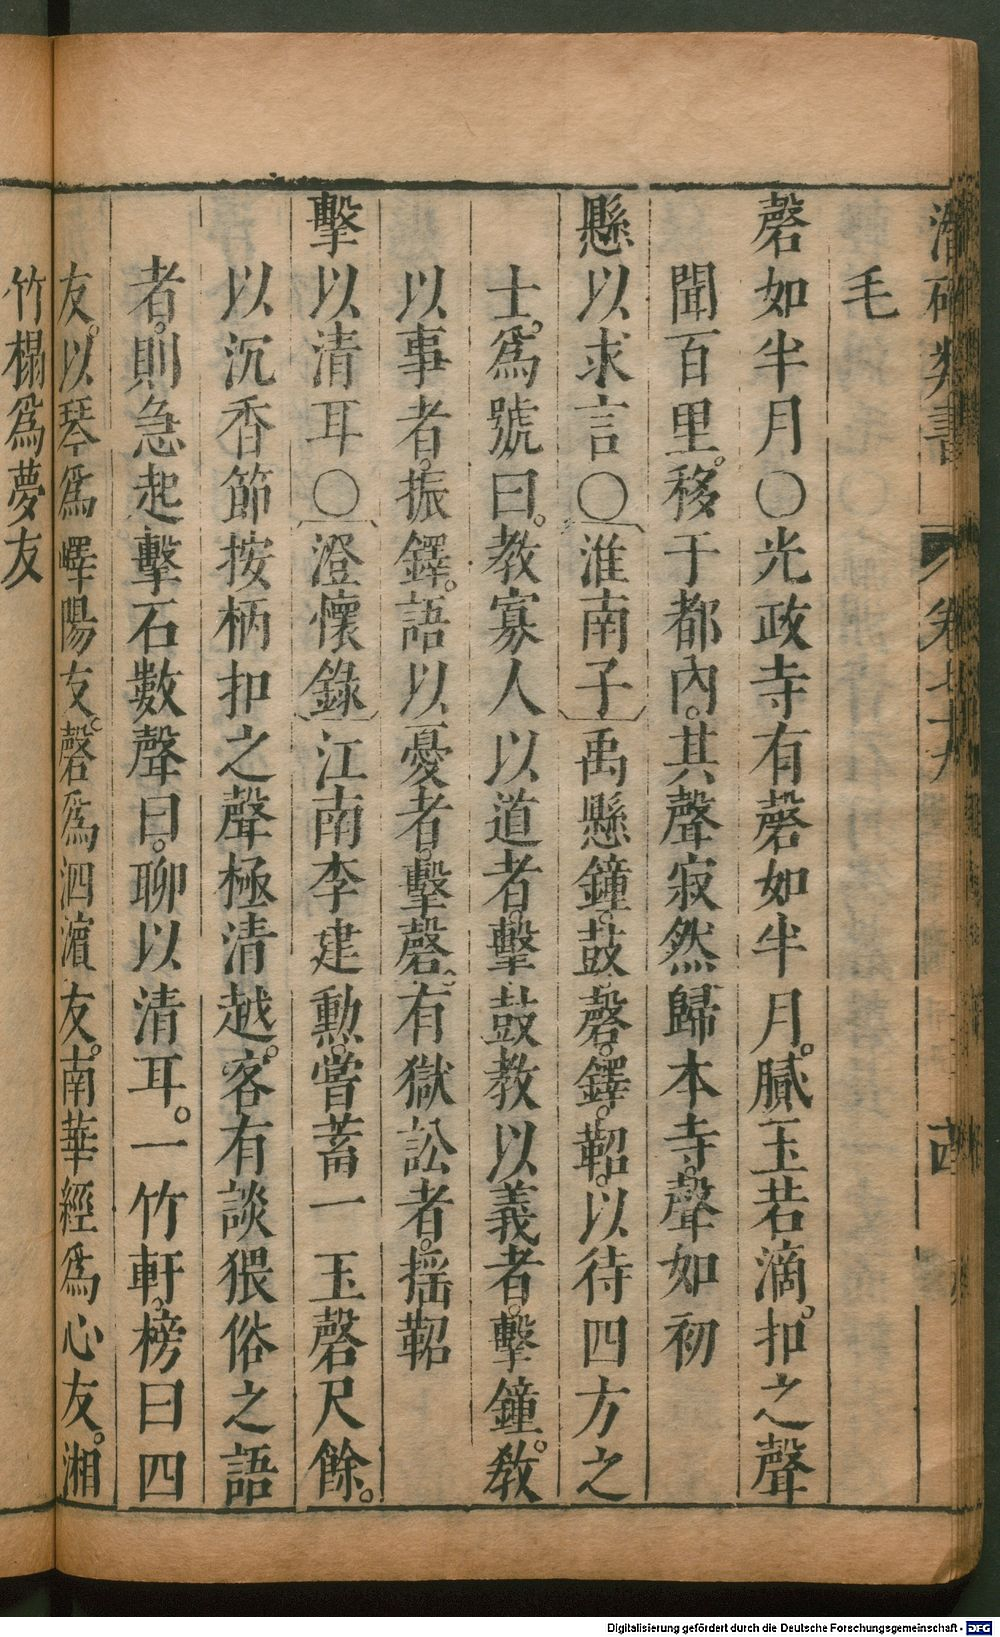 潛確類書 卷七十九
毛
磬如半月○光政寺有磬如半月。膩玉若滴。扣之聲
聞百里。移于都內。其聲寂然歸本寺。聲如初
懸以求言○〔淮南子〕禹懸鐘。鼓。磬。鐸。鞀。以待四方之
士。爲號曰。教寡人以道者。擊鼓教以義者。擊鐘。教
以事者。振鐸。語以憂者。擊磬。有獄訟者。揺鞀
擊以清耳○〔澄懷錄〕江南李建勲。嘗蓄一玉磬尺餘。
以沉香節按柄扣之聲極清越。客有談猥俗之語
者。則急起擊石數聲曰。聊以清耳。一竹軒。榜曰四
友。以琴爲嶧陽友。磬爲泗濵友。南華經爲心友。湘
竹榻爲夢友
Digitalisierung gefördert durch die Deutsche Forschungsgemeinschaft - DFG